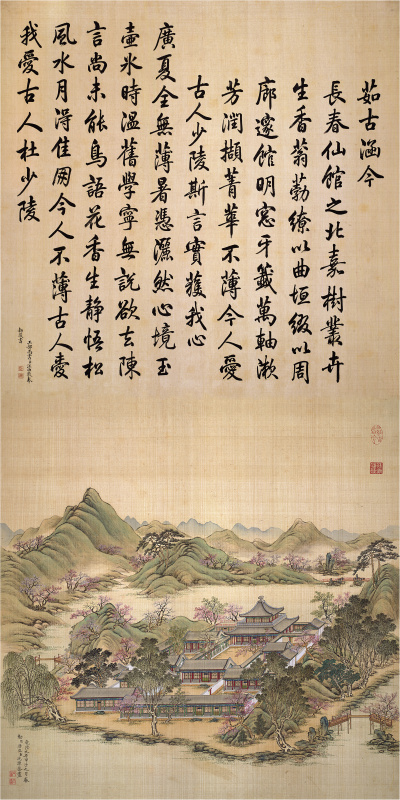 茹古涵今
長春仙館之北嘉樹叢卉
生香蓊葧繚以曲垣綴以周
廊邃館明窓牙籤萬軸漱
芳潤擷菁華不薄今人愛
古人少陵斯言實獲我心
廣夏全無薄暑憑灑然心境玉
壺氷時溫舊學寧無説欲去陳
言尚未能鳥語花香生靜悟松
風水月淂佳朋今人不薄古人愛
我愛古人杜少陵